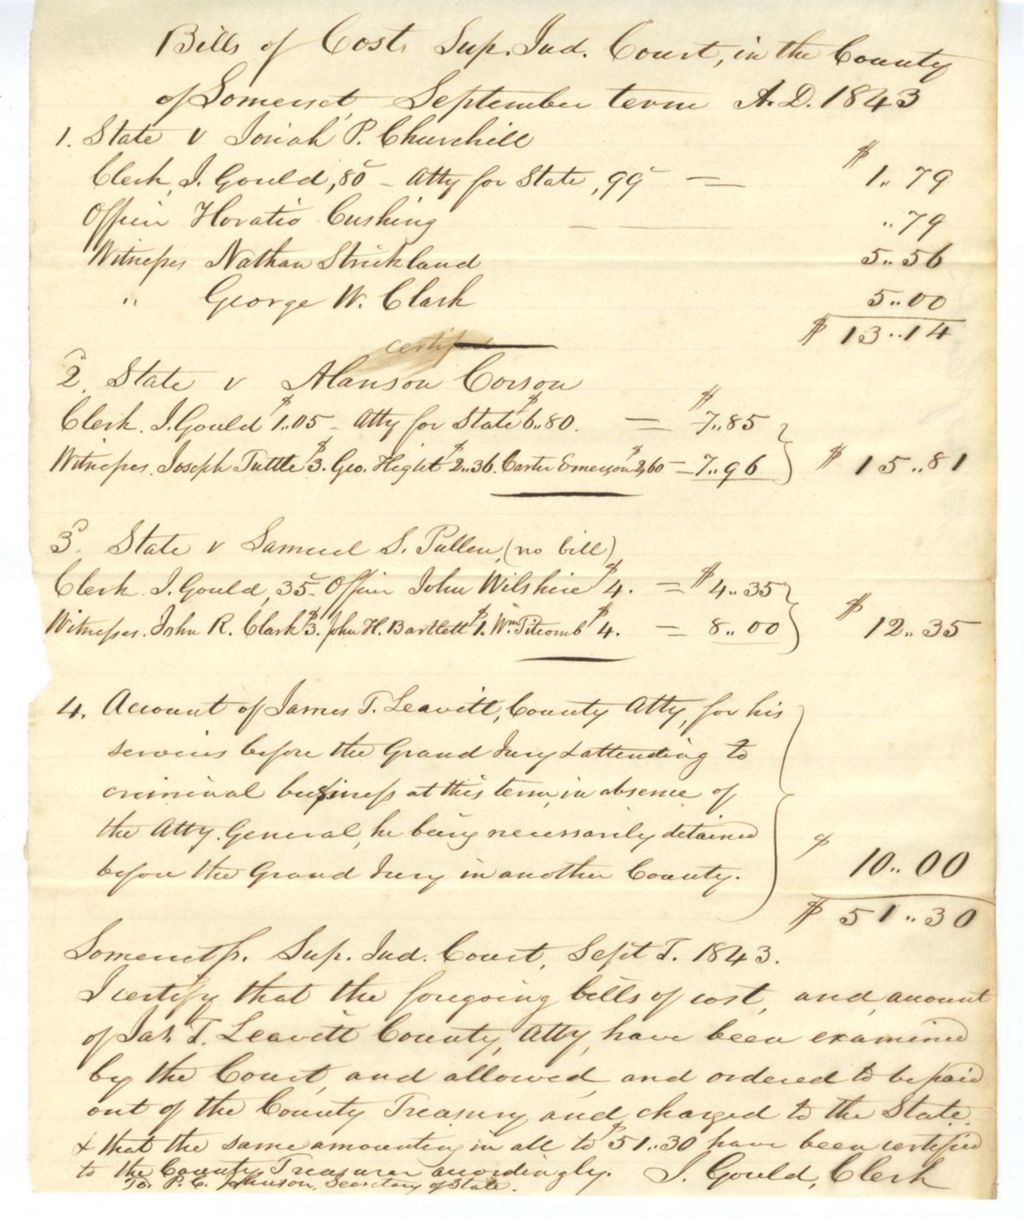 Bills of Cost. Sup. Jud. Court, in the County
of Somerset September term A.D. 1843
1. State v Josiah P. Churchill
Clerk, J. Gould, 80 - Atty for State, 99 = $ 1.. 79
Officer Horatio Cushing — .. 79
Witnesses Nathan Strickland 5.. 56
" George W. Clark 5.. 00
$ 13..14
certified
2. State v Alanson Corson
Clerk. J. Gould $1..05 - Atty for State $6..80. = $7..85
Witnesses. Joseph Tuttle $3. Geo. Hight $2..36. Carter Emerson $2,60 = 7..96 } $ 15..81
3. State v Samuel S. Pullen, (no bill)
Clerk. J. Gould, 35 - Officer John Wilshire $4. = $4..35
Witnesses. John R. Clark $3. John H. Bartlett $1. Wm Titcomb $4. = 8..00 } $ 12..35
4. Account of James T. Leavitt, County Atty, for his
services before the Grand Jury & attending to
criminal business at this term, in absence of
the Atty. General, he being necessarily detained
before the Grand Jury in another County. $ 10..00
$ 51..30
Somerset ss. Sup. Jud. Court, Sept T. 1843.
I certify that the foregoing bills of cost, and, amount
of Jas. T. Leavitt County, Atty, have been examined
by the Court, and allowed and ordered to be paid
out of the County Treasury and charged to the State.
& that the same amounting in all to $51..30 have been certified
to the County Treasurer accordingly. J. Gould, Clerk
To P. C. Johnson, Secretary of State.